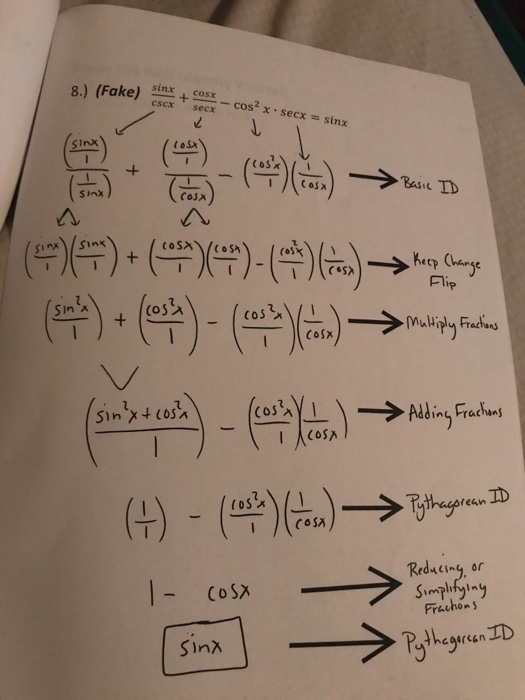 8.) (Fake) sinx/cscx + cosx/secx − cos² x · secx = sinx
(sinx/1)/(1/sinx) + (cosx/1)/(1/cosx) − (cos²x/1)(1/cosx) → Basic ID
(sinx/1)(sinx/1) + (cosx/1)(cosx/1) − (cos²x/1)(1/cosx) → Keep Change Flip
(sin²x/1) + (cos²x/1) − (cos²x/1)(1/cosx) → Multiply Fractions
(sin²x + cos²x/1) − (cos²x/1)(1/cosx) → Adding Fractions
(1/1) − (cos²x/1)(1/cosx) → Pythagorean ID
1 − cosx → Reducing, or Simplifying Frachons
sinx → Pythagorean ID